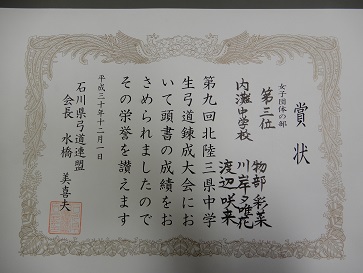 賞状
女子団体の部
第三位
内灘中学校
物部 彩菜
川岸 夕唯花
渡辺 咲来
第九回北陸三県中学
生弓道錬成大会にお
いて頭書の成績をお
さめられましたので
その栄誉を讃えます
平成三十年十二月一日
石川県弓道連盟
会長 水橋 美喜夫